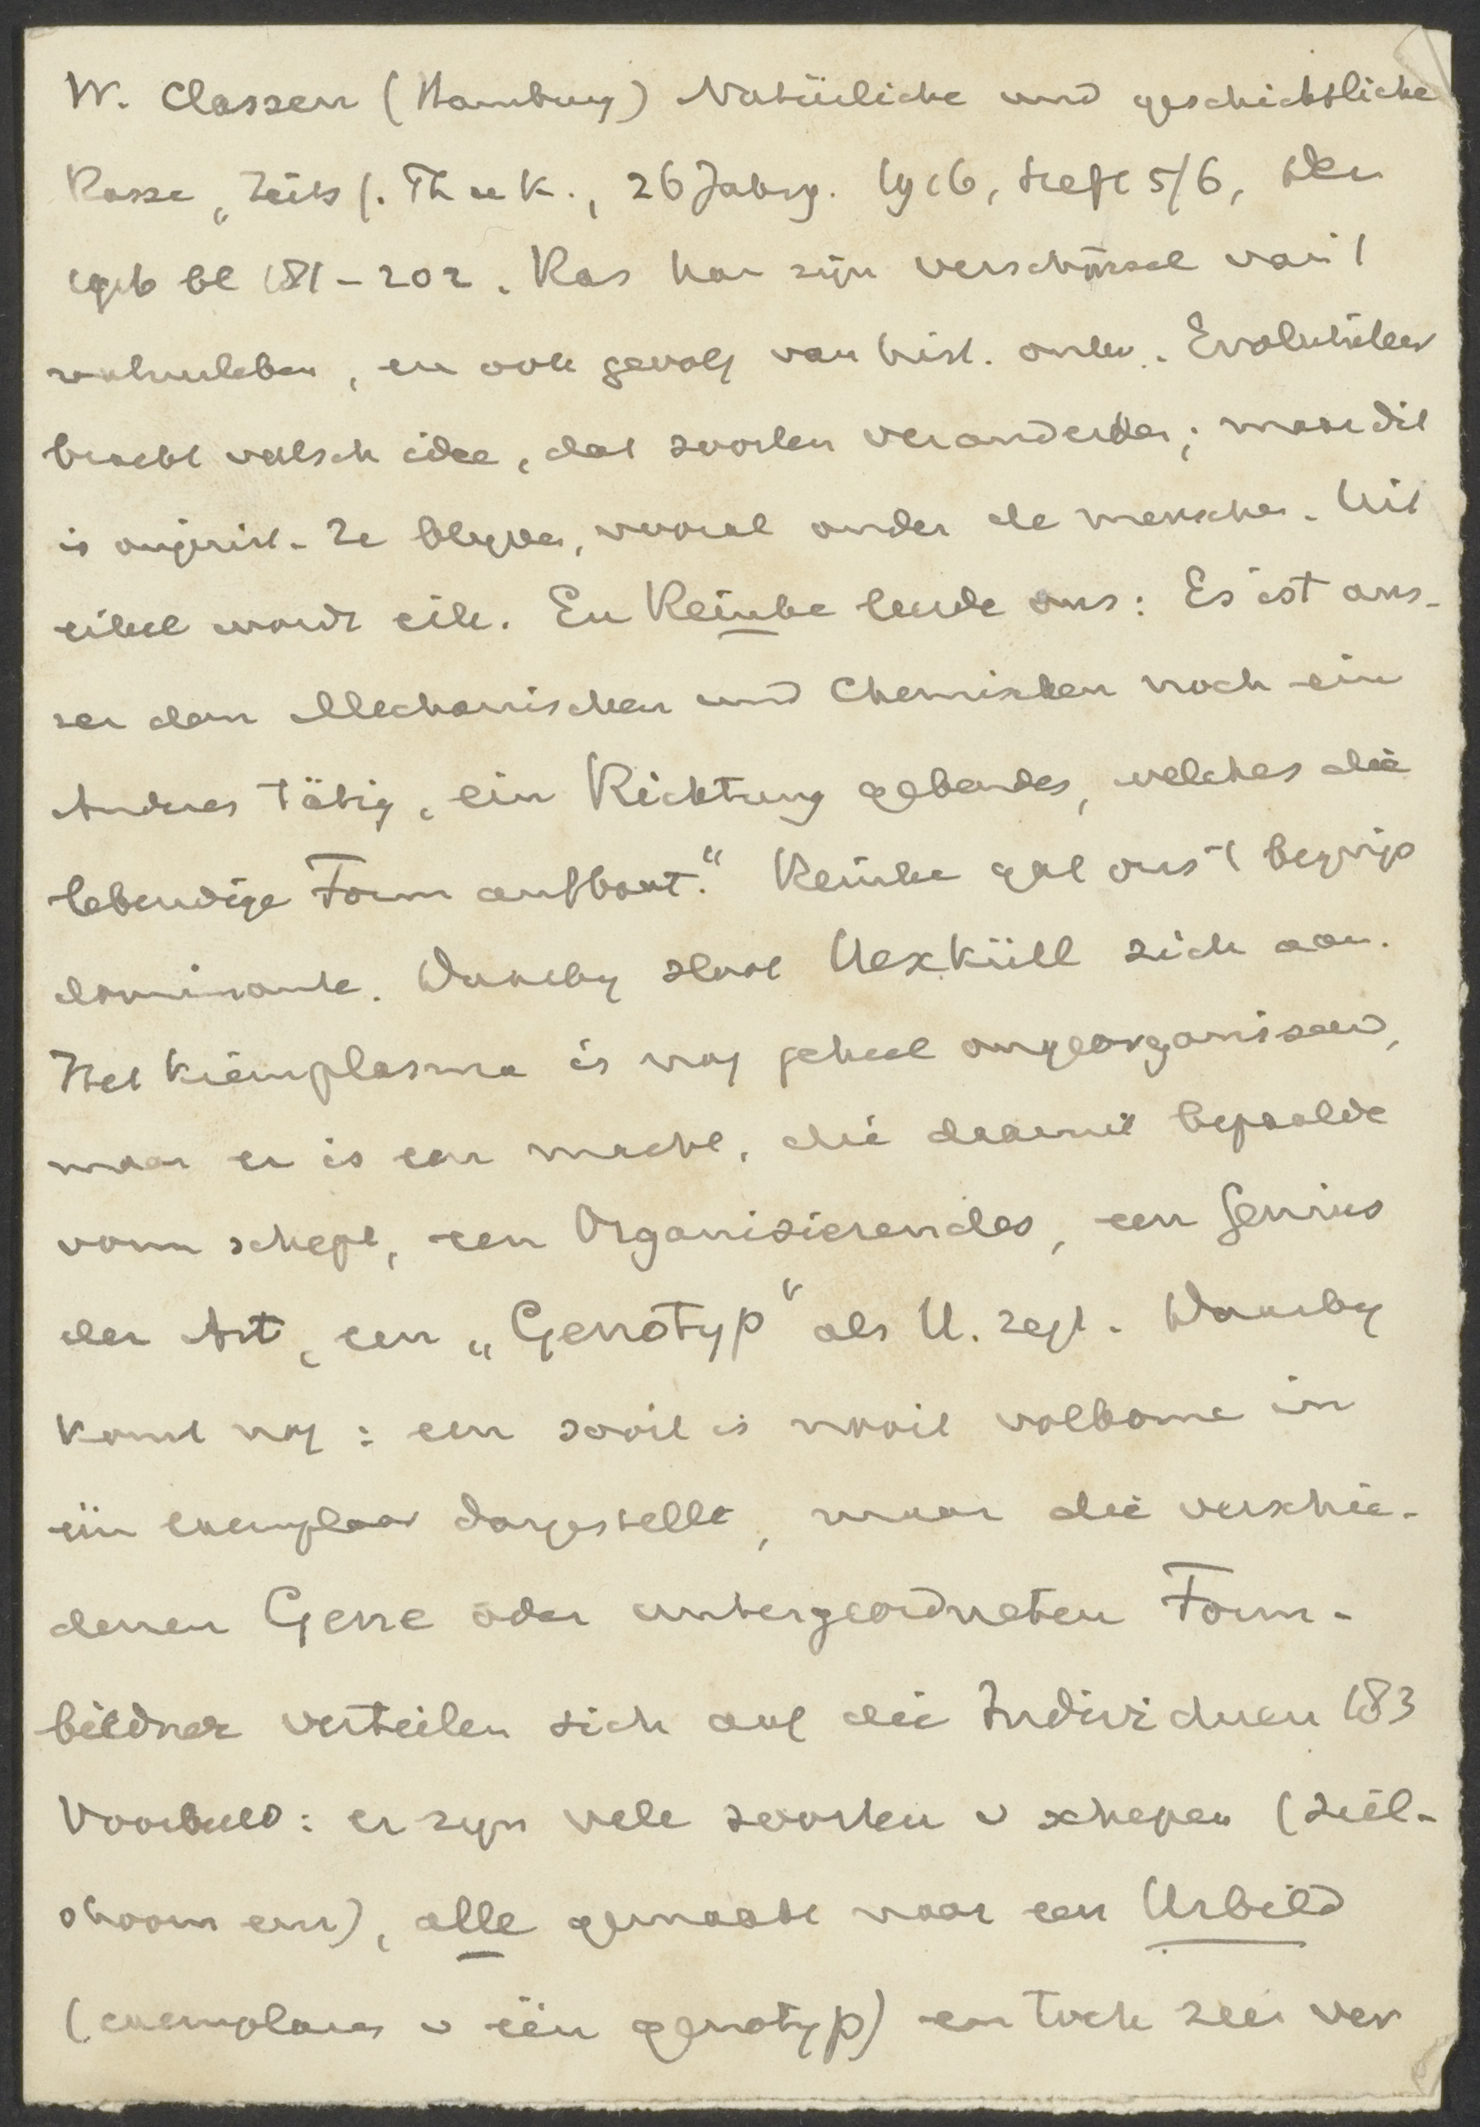 W. Classen (Hamburg) Natürliche und geschichtliche
Rasse, Zeits f. Th u K., 26 Jahrg. 1916, Heft 5/6, Dec
1916 bl 181-202. Ras kan zijn verschijnsel van 't
natuurleben, en ook gevolg van hist. ontw. Evolutieleer
bracht valsch idee, dat soorten veranderden; maar dit
is onjuist. Ze blijven, vooral onder de menschen. Uit
eikel wordt eik. En Reinke leerde ons: Es ist aus-
ser dem Mechanischen und Chemischen noch ein
Anderes tätig, ein Richtung gebendes, welches die
lebendige Form aufbaut." Reinke gaf ons 't begrip
dominante. Daarbij sloot Uexküll zich aan.
Het kiemplasma is nog geheel ongeorganiseerd,
maar er is een macht, die daaruit bepaalde
vorm schept, een Organisierendes, een Genius
der Art, een „Genotyp" als U. zegt. Daarbij
komt nog: een soort is nooit volkomen in
één exemplaar dargestellt, maar die verschie-
denen Gene oder untergeordneten Form-
bildner verteilen sich auf die Individuen 183
Voorbeeld: er zijn vele soorten v schepen (zeil-
stoom enz), alle gemaakt naar een Urbild
(exemplares v één genotyp) en toch zeer ver